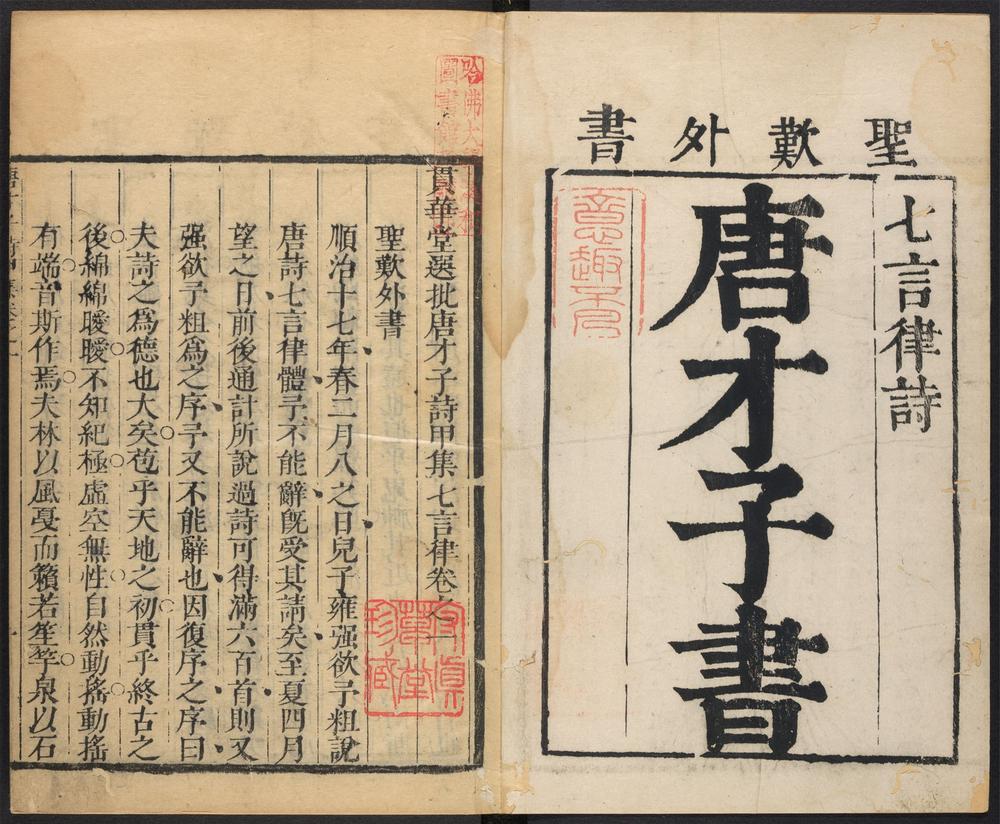 聖歎外書
七言律詩
唐才子書
意趣不存
貫華堂選批唐才子詩甲集七言律卷之一
聖歎外書
順治十七年春二月八之日兒子雍强欲予粗說
唐詩七言律體予不能辭旣受其請矣至夏四月
望之日前後通計所說過詩可得滿六百首則又
强欲予粗爲之序予又不能辭也因復序之序曰
夫詩之爲德也大矣苞乎天地之初貫乎終古之
後綿綿曖曖不知紀極虛空無性自然動搖動搖
有端音斯作焉夫林以風戛而籟若笙竽泉以石
哈佛大
圖書
草堂
珍藏